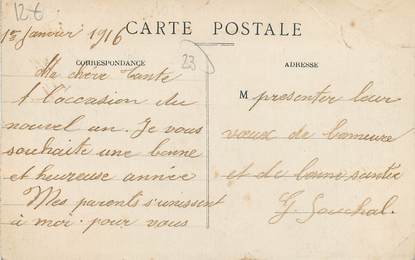 12€
15 Janvier 1916
CARTE POSTALE
23
CORRESPONDANCE
ADRESSE
Ma chère Tante
A l'occasion du
nouvel an. Je vous
souhaite une bonne
et heureuse année
Mes parents s'unissent
à moi pour vous
M presenter leur
vœux de bonheure
et de bonne santée
G.